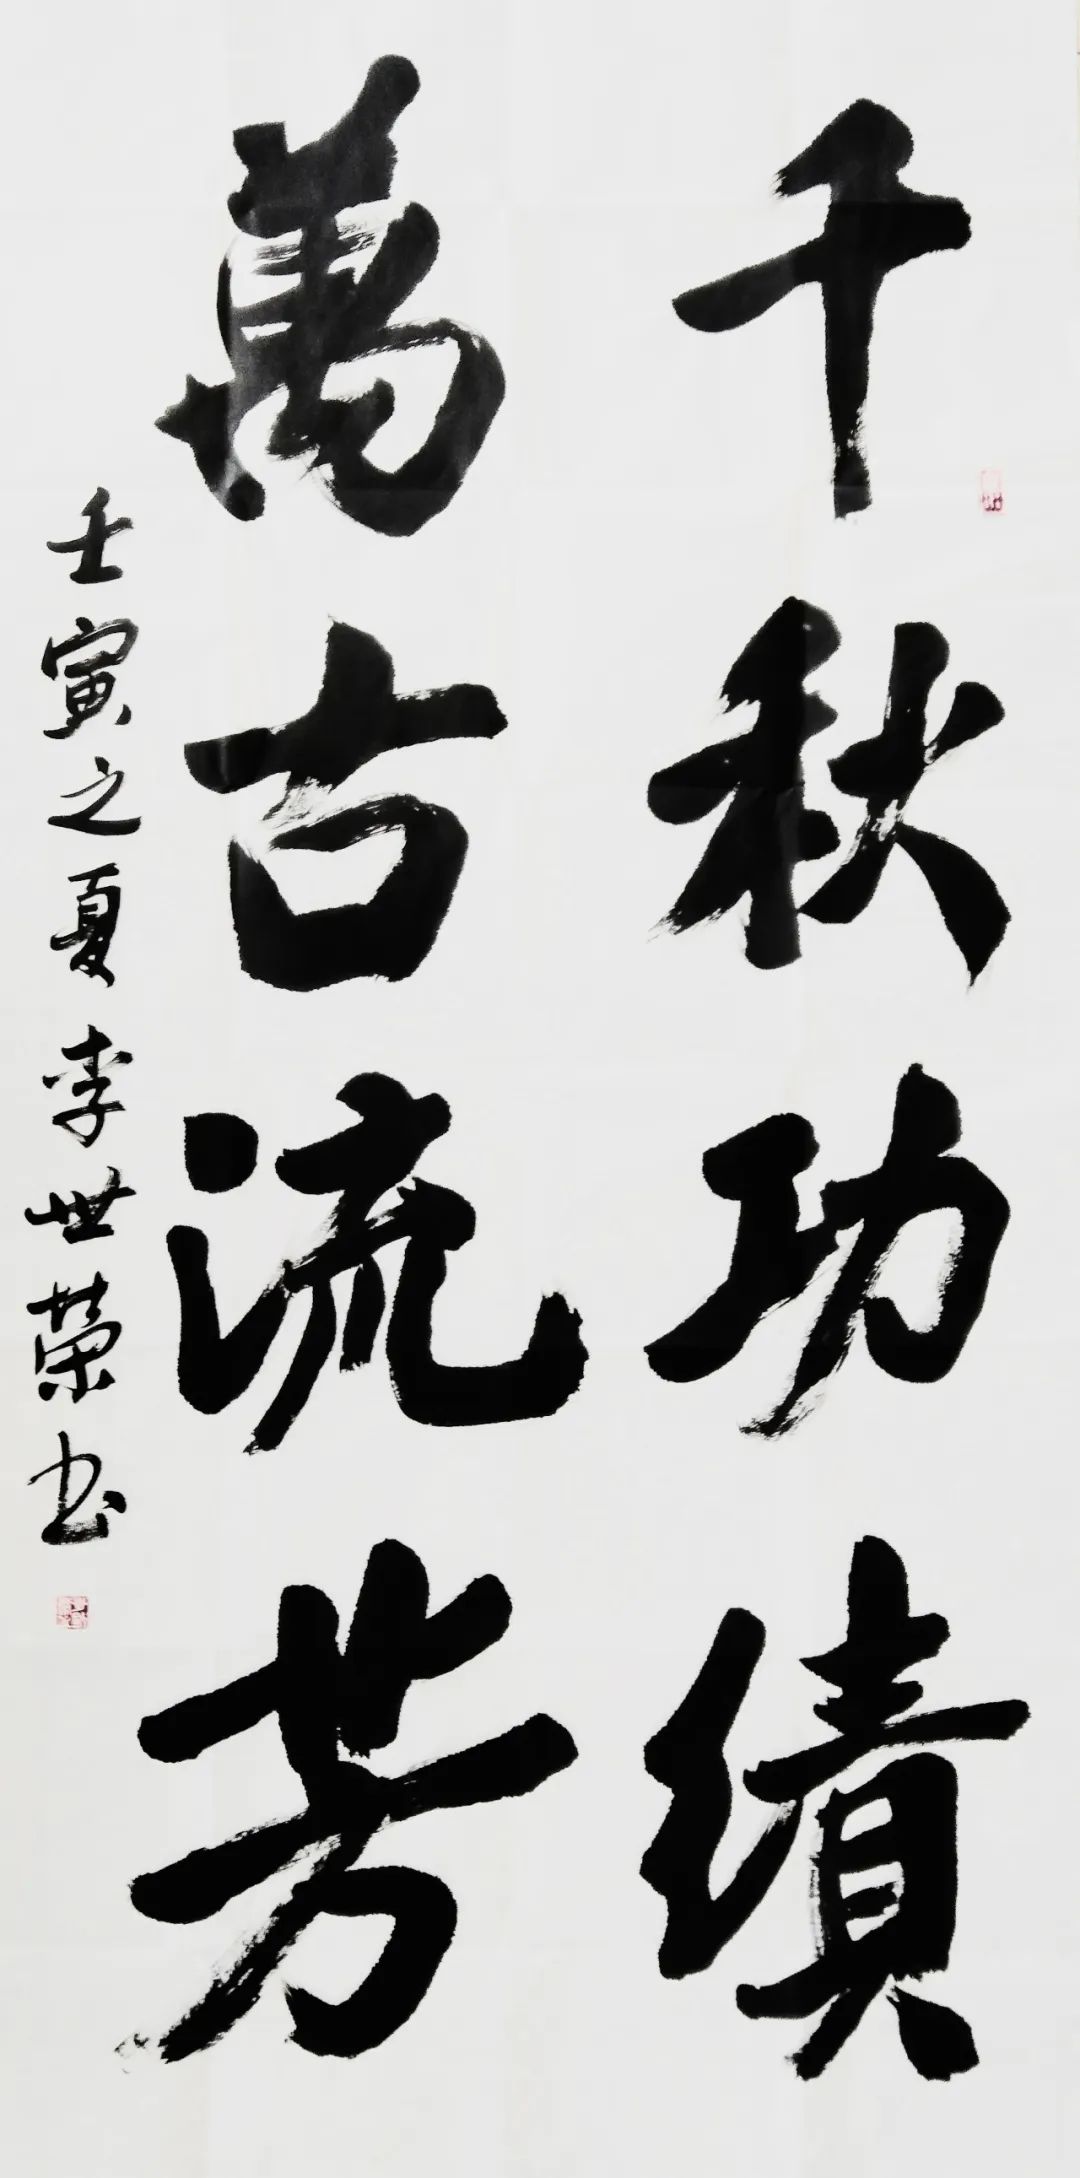 千秋功績
萬古流芳
壬寅之夏李世榮书